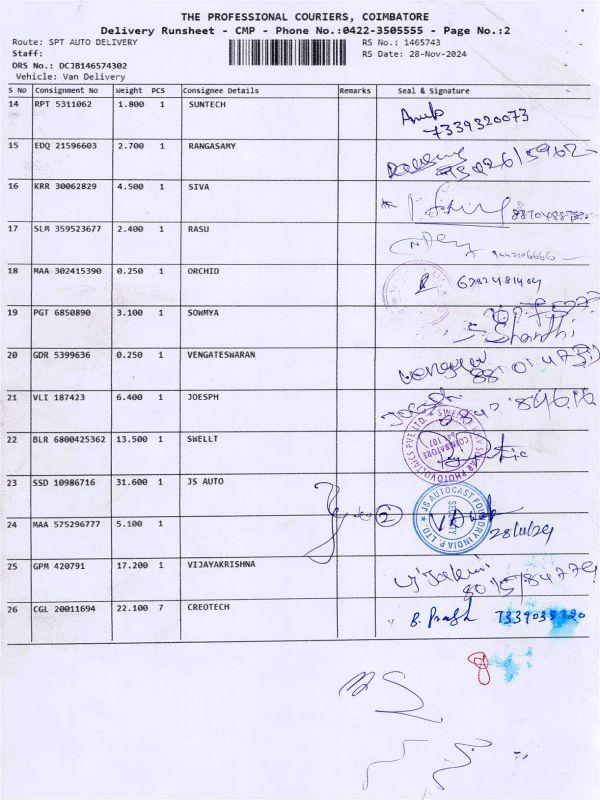 THE PROFESSIONAL COURIERS, COIMBATORE
Delivery Runsheet - CMP - Phone No.:0422-3505555 - Page No.:2
Route: SPT AUTO DELIVERY RS No.: 1465743
Staff: RS Date: 28-Nov-2024
DRS No.: DCJB146574302
Vehicle: Van Delivery
S No Consignment No Weight PCS Consignee Details Remarks Seal & Signature
14 RPT 5311062 1.800 1 SUNTECH
7339320073
15 EDQ 21596603 2.700 1 RANGASAMY
16 KRR 30062829 4.500 1 SIVA
17 SLM 359523677 2.400 1 RASU
18 MAA 302415390 0.250 1 ORCHID
19 PGT 6850890 3.100 1 SOWMYA
S. Shanthi
20 GDR 5399636 0.250 1 VENGATESWARAN
21 VLI 187423 6.400 1 JOESPH
22 BLR 6800425362 13.500 1 SWELLT
23 SSD 10986716 31.600 1 JS AUTO
JS AUTOCAST FOUNDRY INDIA P. LTD.
SECURITY
2
28/11/24
24 MAA 575296777 5.100 1
25 GPM 420791 17.200 1 VIJAYAKRISHNA
26 CGL 20011694 22.100 7 CREOTECH